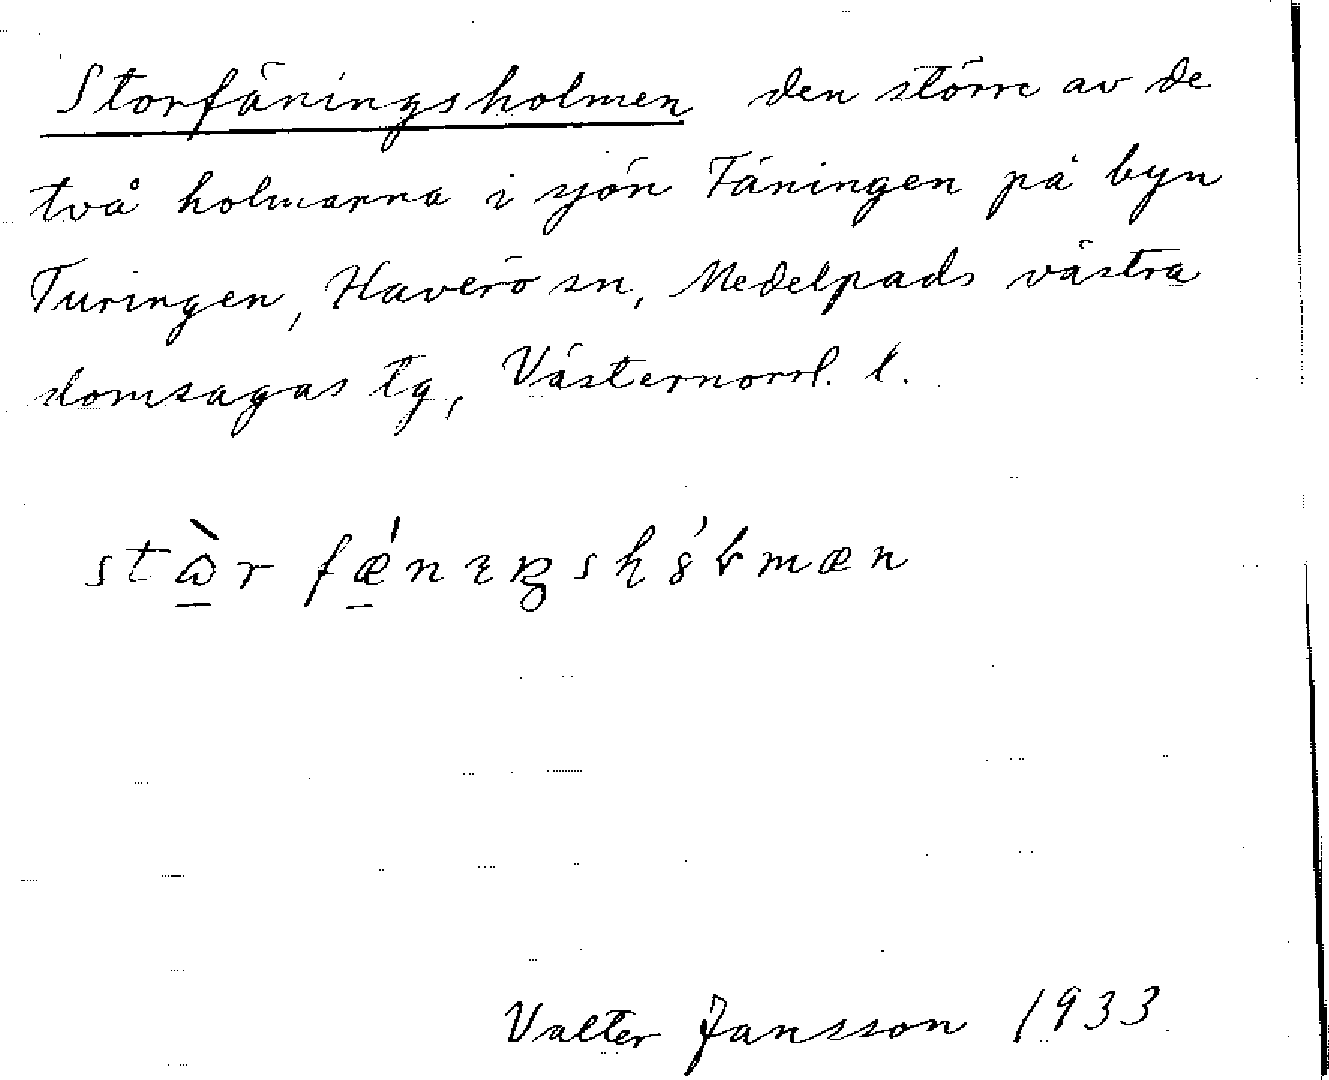 Storfäningsholmen den större av de
två holmarna i sjön Fäningen på byn
Turingen, Haverö sn, Medelpads västra
domsagas tg, Västernorrl. l.
Valter Jansson 1933